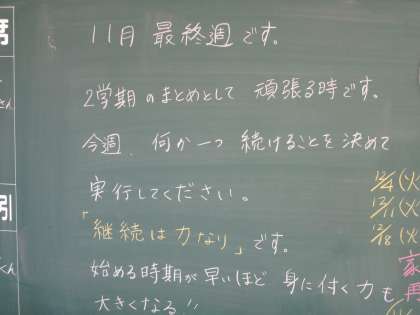 11月 最終週です。
2学期のまとめとして 頑張る時です。
今週、何か一つ 続けることを決めて
実行してください。
「継続は力なり」です。
始める時期が早いほど 身に付く力も
大きくなる!!
席
さん
引
くん
12/4(火
12/11(火
12/18(火
家
再